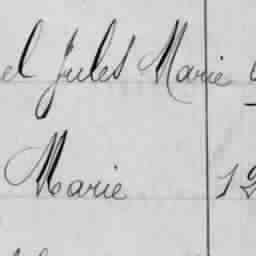 el Jules Marie
Marie 12